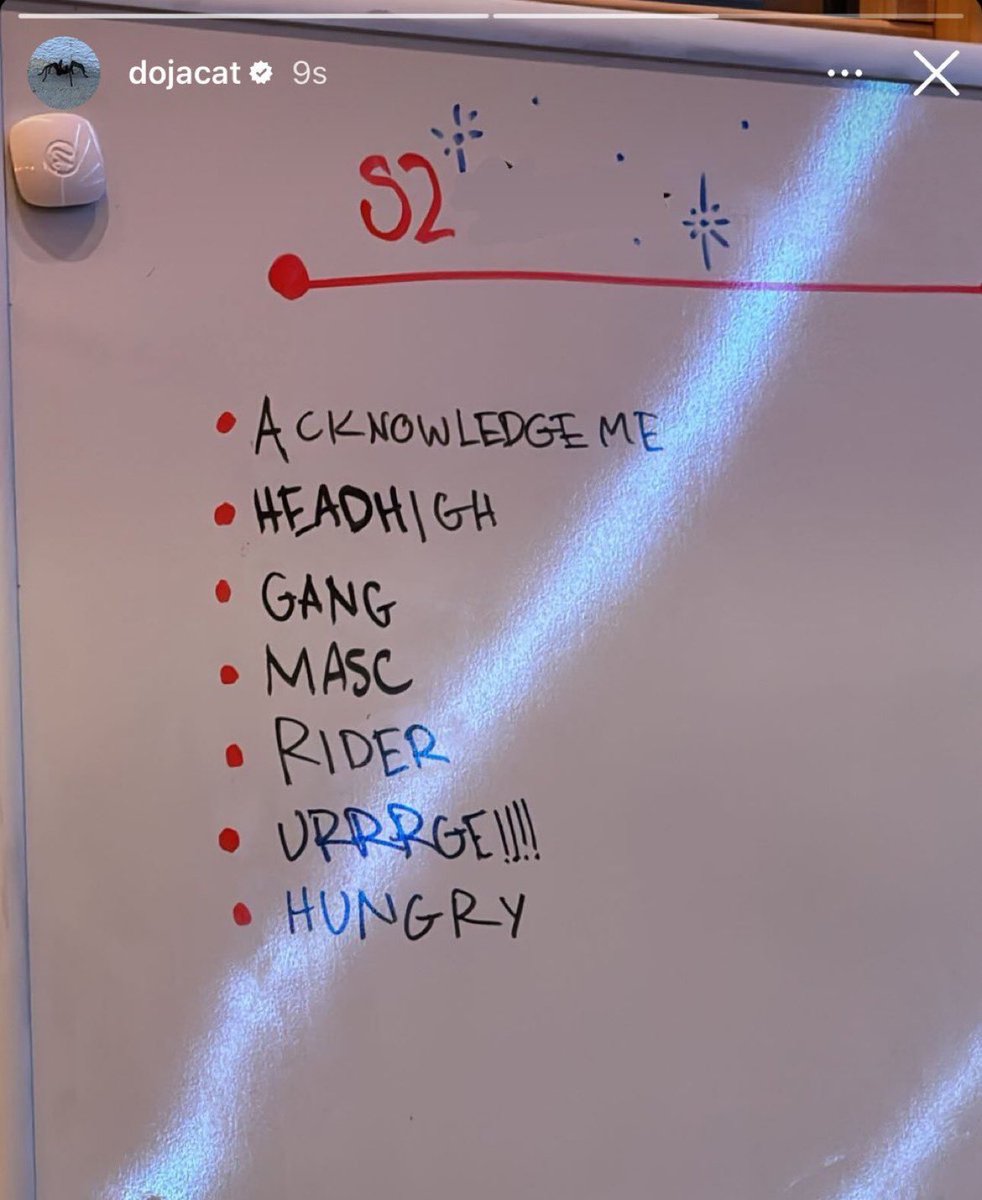 dojacat 9s
S2
ACKNOWLEDGE ME
HEADHIGH
GANG
MASC
RIDER
URRRGE!!!!
HUNGRY